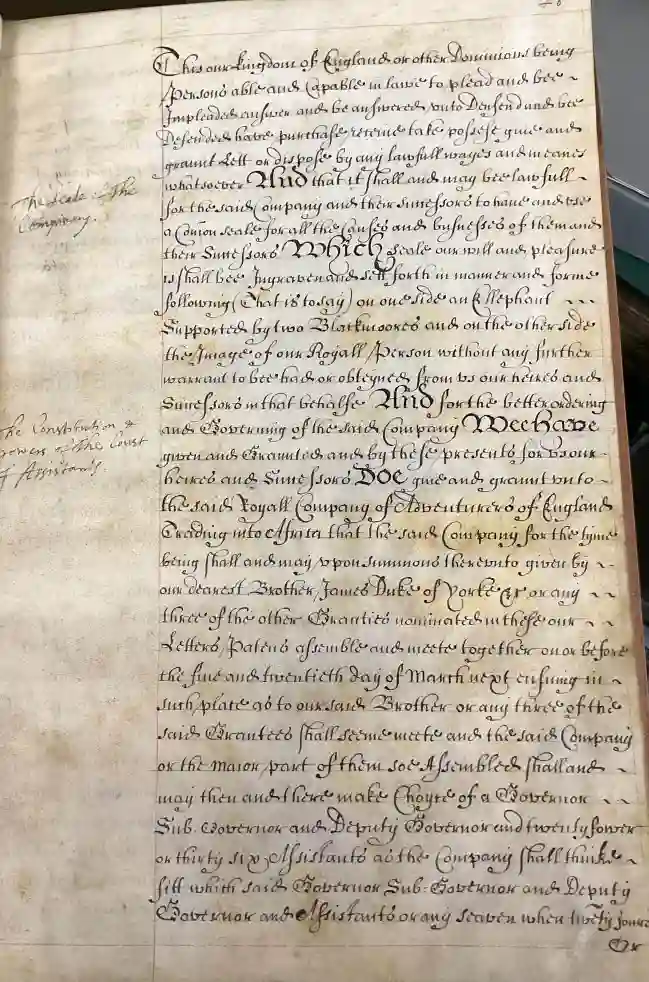 This our kingdom of England or other Dominions being
Persons able and Capable in lawe to plead and bee
Impleaded answer and be answered unto Defend and bee
Defended have purchase receive take possese give and
graunt Lett or dispose by any lawfull wayes and meanes
whatsoever And that it shall and may bee lawfull
The Seale of the
Company.
for the said Company and their Successors to have and use
a Comon seale for all the Causes and busnesses of them and
their Successors Which seale our will and pleasure
is shall bee Ingraven and sett forth in manner and forme
following (That is to say) on one side an Ellephant
Supported by two Blackmoores and on the other side
the Image of our Royall Person without any further
warrant to bee had or obteyned from us our heires and
Successors in that behalfe And for the better ordering
The Constitution &
powers of the Court
of Assistants.
and Governing of the said Company Wee have
given and Graunted and by these presents for us our
heires and Successors Doe give and graunt unto
the said Royall Company of Adventurers of England
Trading into Africa that the said Company for the tyme
being shall and may upon summons thereunto given by
our dearest Brother James Duke of Yorke &c or any
three of the other Grantees nominated in these our
Letters Patens assemble and meete together on or before
the five and twentieth day of March next ensuing in
such place as to our said Brother or any three of the
said Grantees shall seeme meete and the said Company
or the maior part of them soe Assembled shall and
may then and there make Choyce of a Governor
Sub-Governor and Deputy Governor and twenty fower
or thirty six Assistants as the Company shall thinke
fitt which said Governor Sub-Governor and Deputy
Governor and Assistants or any seaven when twēty foure
Or